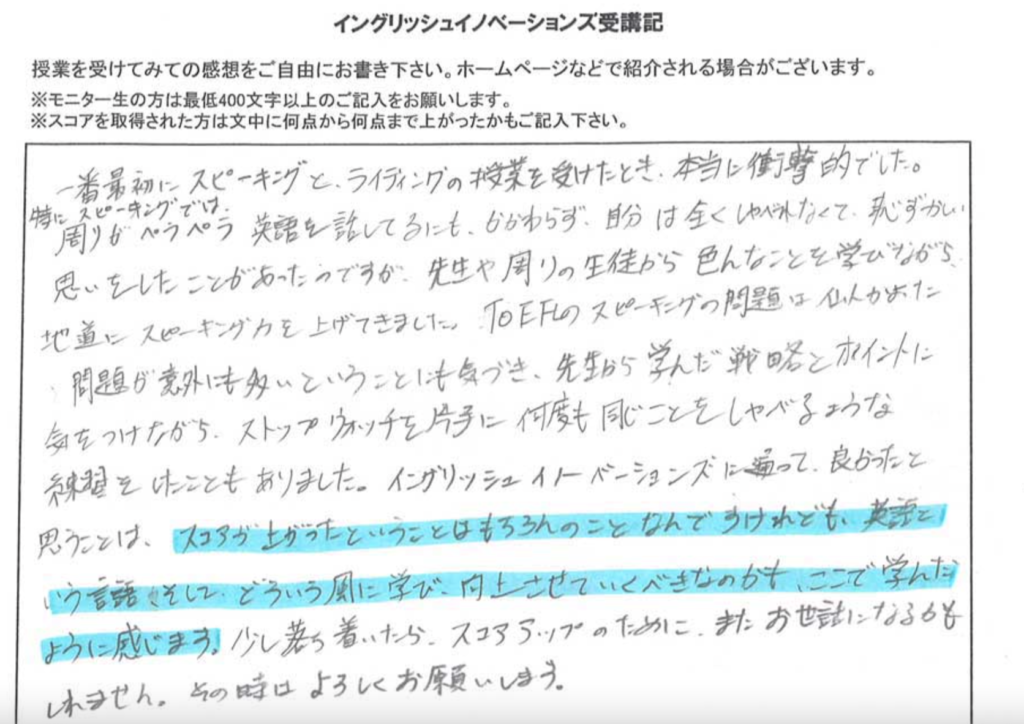 イングリッシュイノベーションズ受講記
授業を受けてみての感想をご自由にお書き下さい。ホームページなどで紹介される場合がございます。
※モニター生の方は最低400文字以上のご記入をお願いします。
※スコアを取得された方は文中に何点から何点まで上がったかもご記入下さい。
一番最初にスピーキングと、ライティングの授業を受けたとき、本当に衝撃的でした。
特にスピーキングでは、
周りがペラペラ英語を話してるにも、かかわらず、自分は全くしゃべれなくて、恥ずかしい
思いをしたことがあったのですが、先生や周りの生徒から色んなことを学びながら、
地道にスピーキング力を上げてきました。TOEFLのスピーキングの問題は似かよった
問題が意外にも多いということにも気づき、先生から学んだ戦略とポイントに
気をつけながら、ストップウォッチを片手に何度も同じことをしゃべるような
練習をしたこともありました。イングリッシュイノベーションズに通って、良かったと
思うことは、スコアが上がったということはもちろんのことなんですけれども、英語と
いう言語、そして、どういう風に学び、向上させていくべきなのかも、ここで学んだ
ように感じます。少し落ち着いたら、スコアアップのために、またお世話になるかも
しれません。その時はよろしくお願いします。